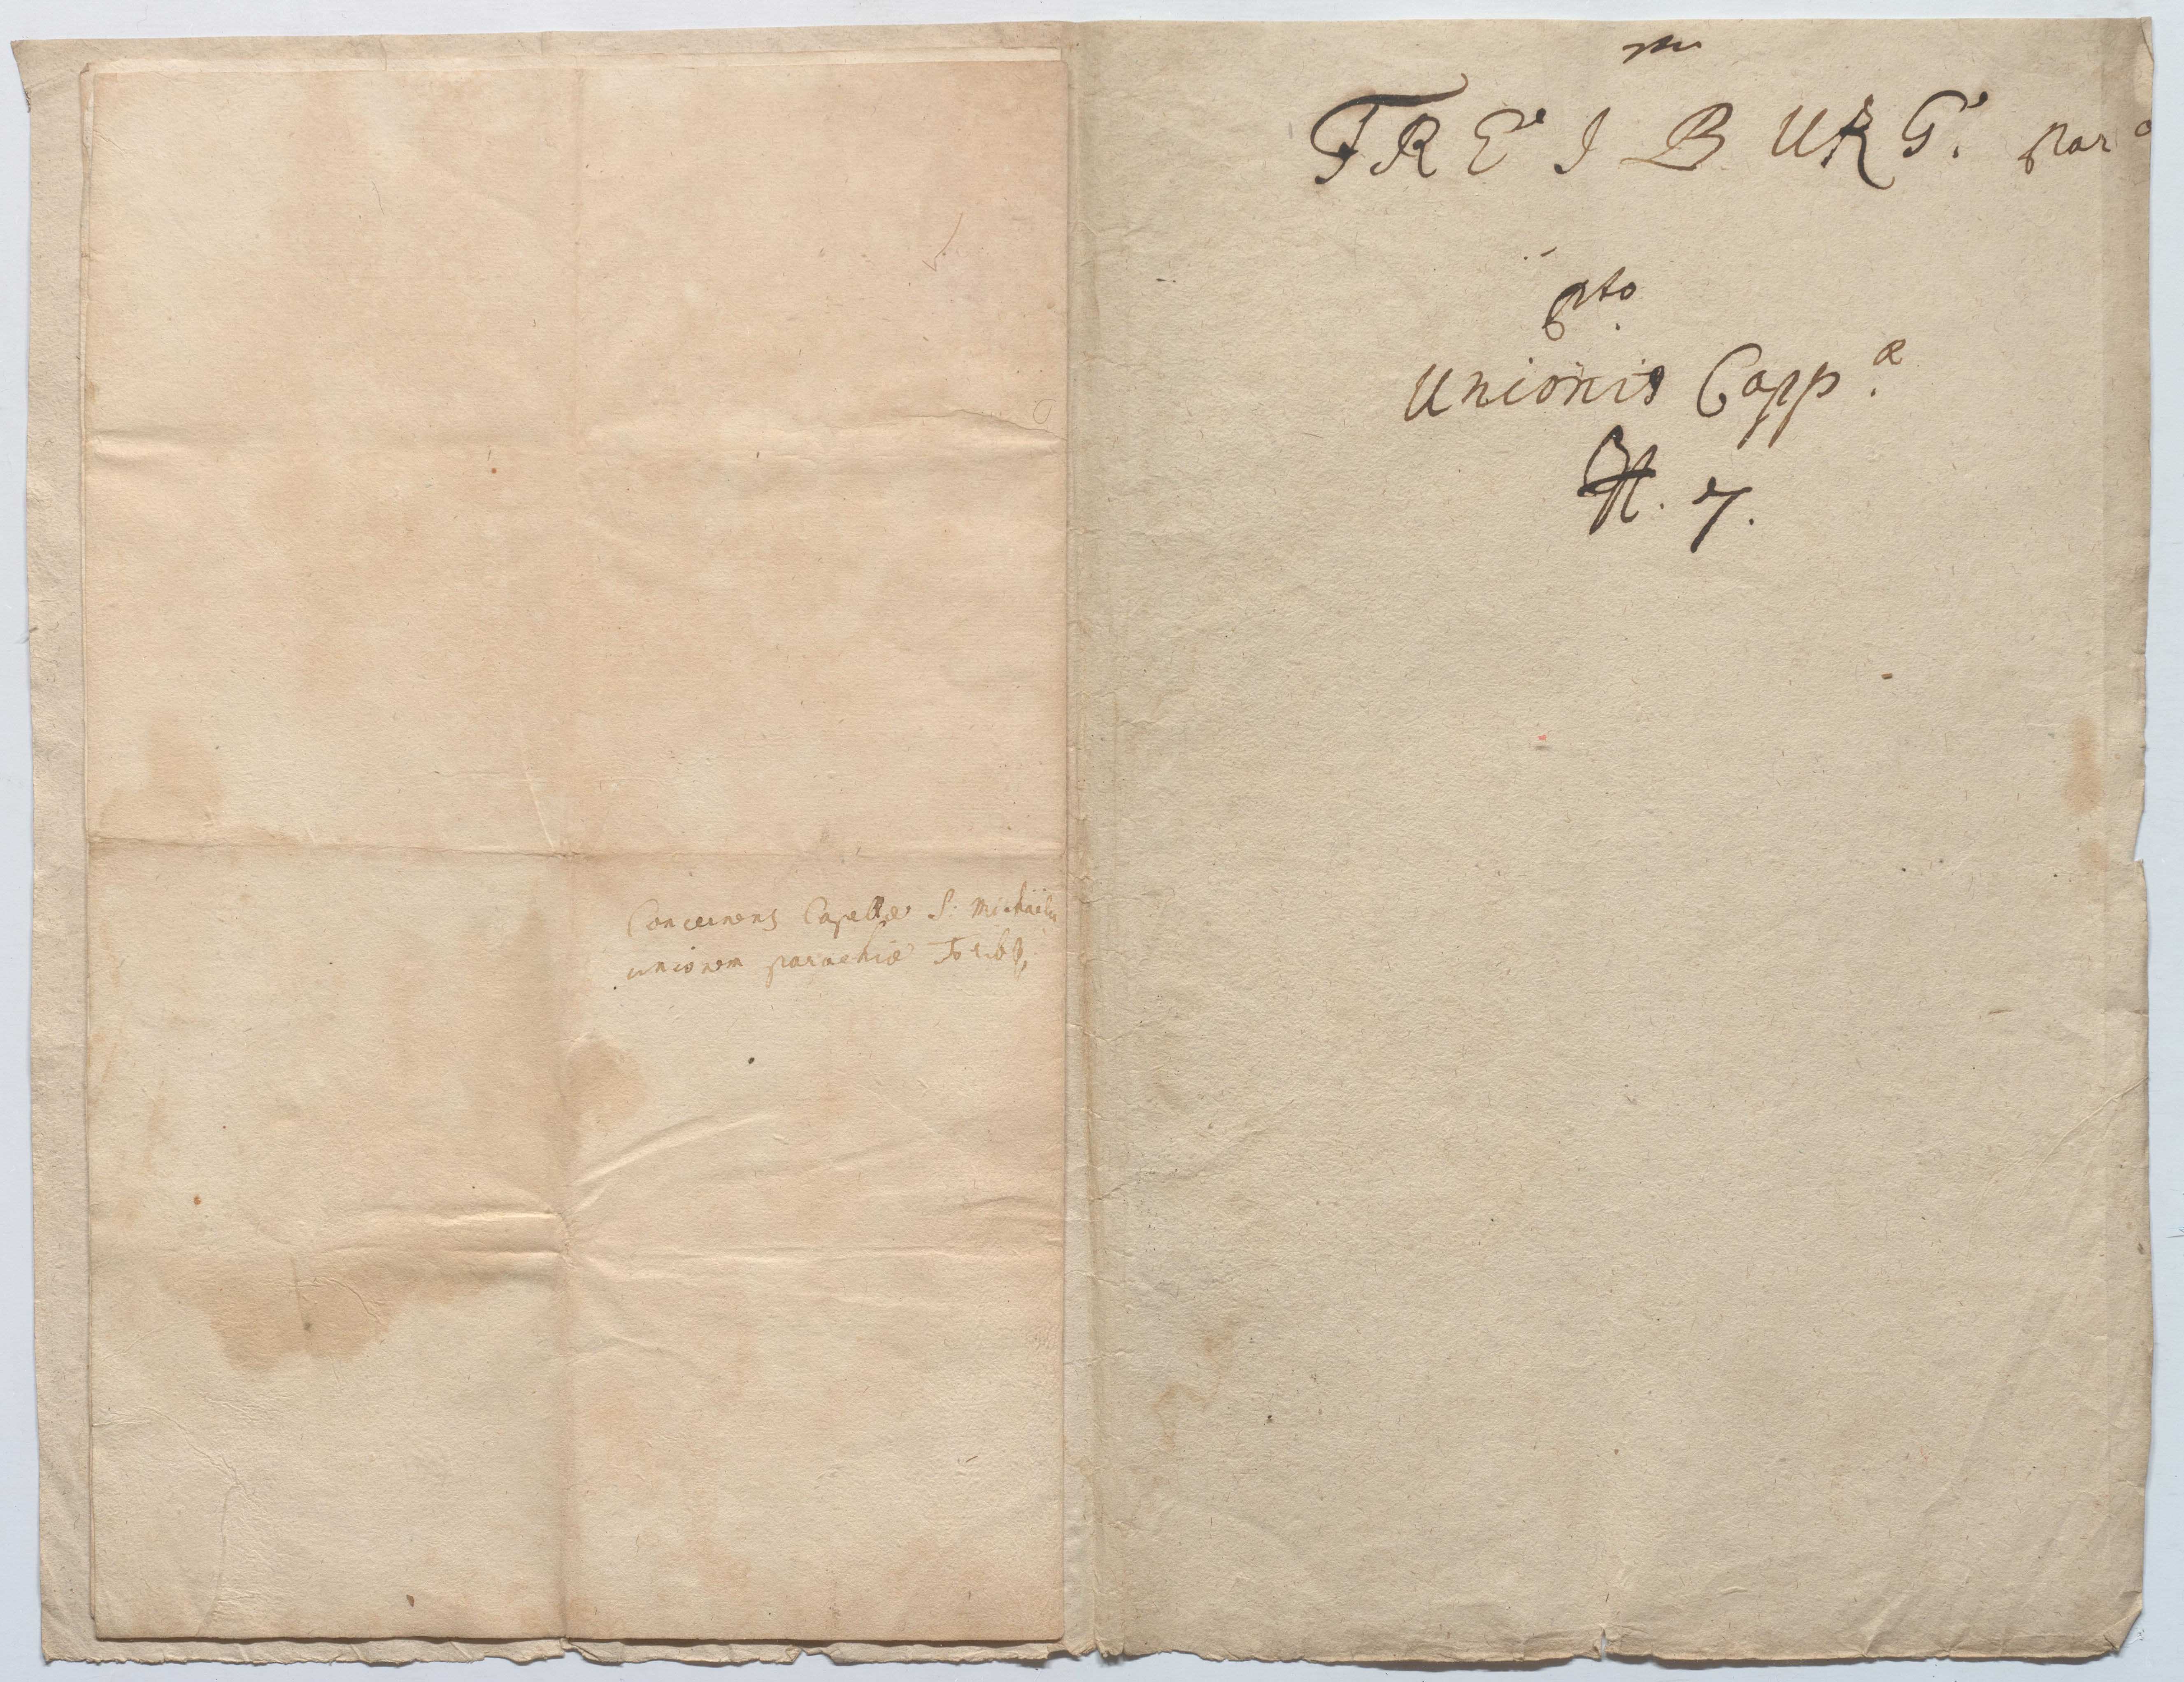 Concernens Capellæ S: Michaelis
unionem parochiæ Freib.
FREIBURG. par.
pto
Unionis Capp.æ
N. 7.